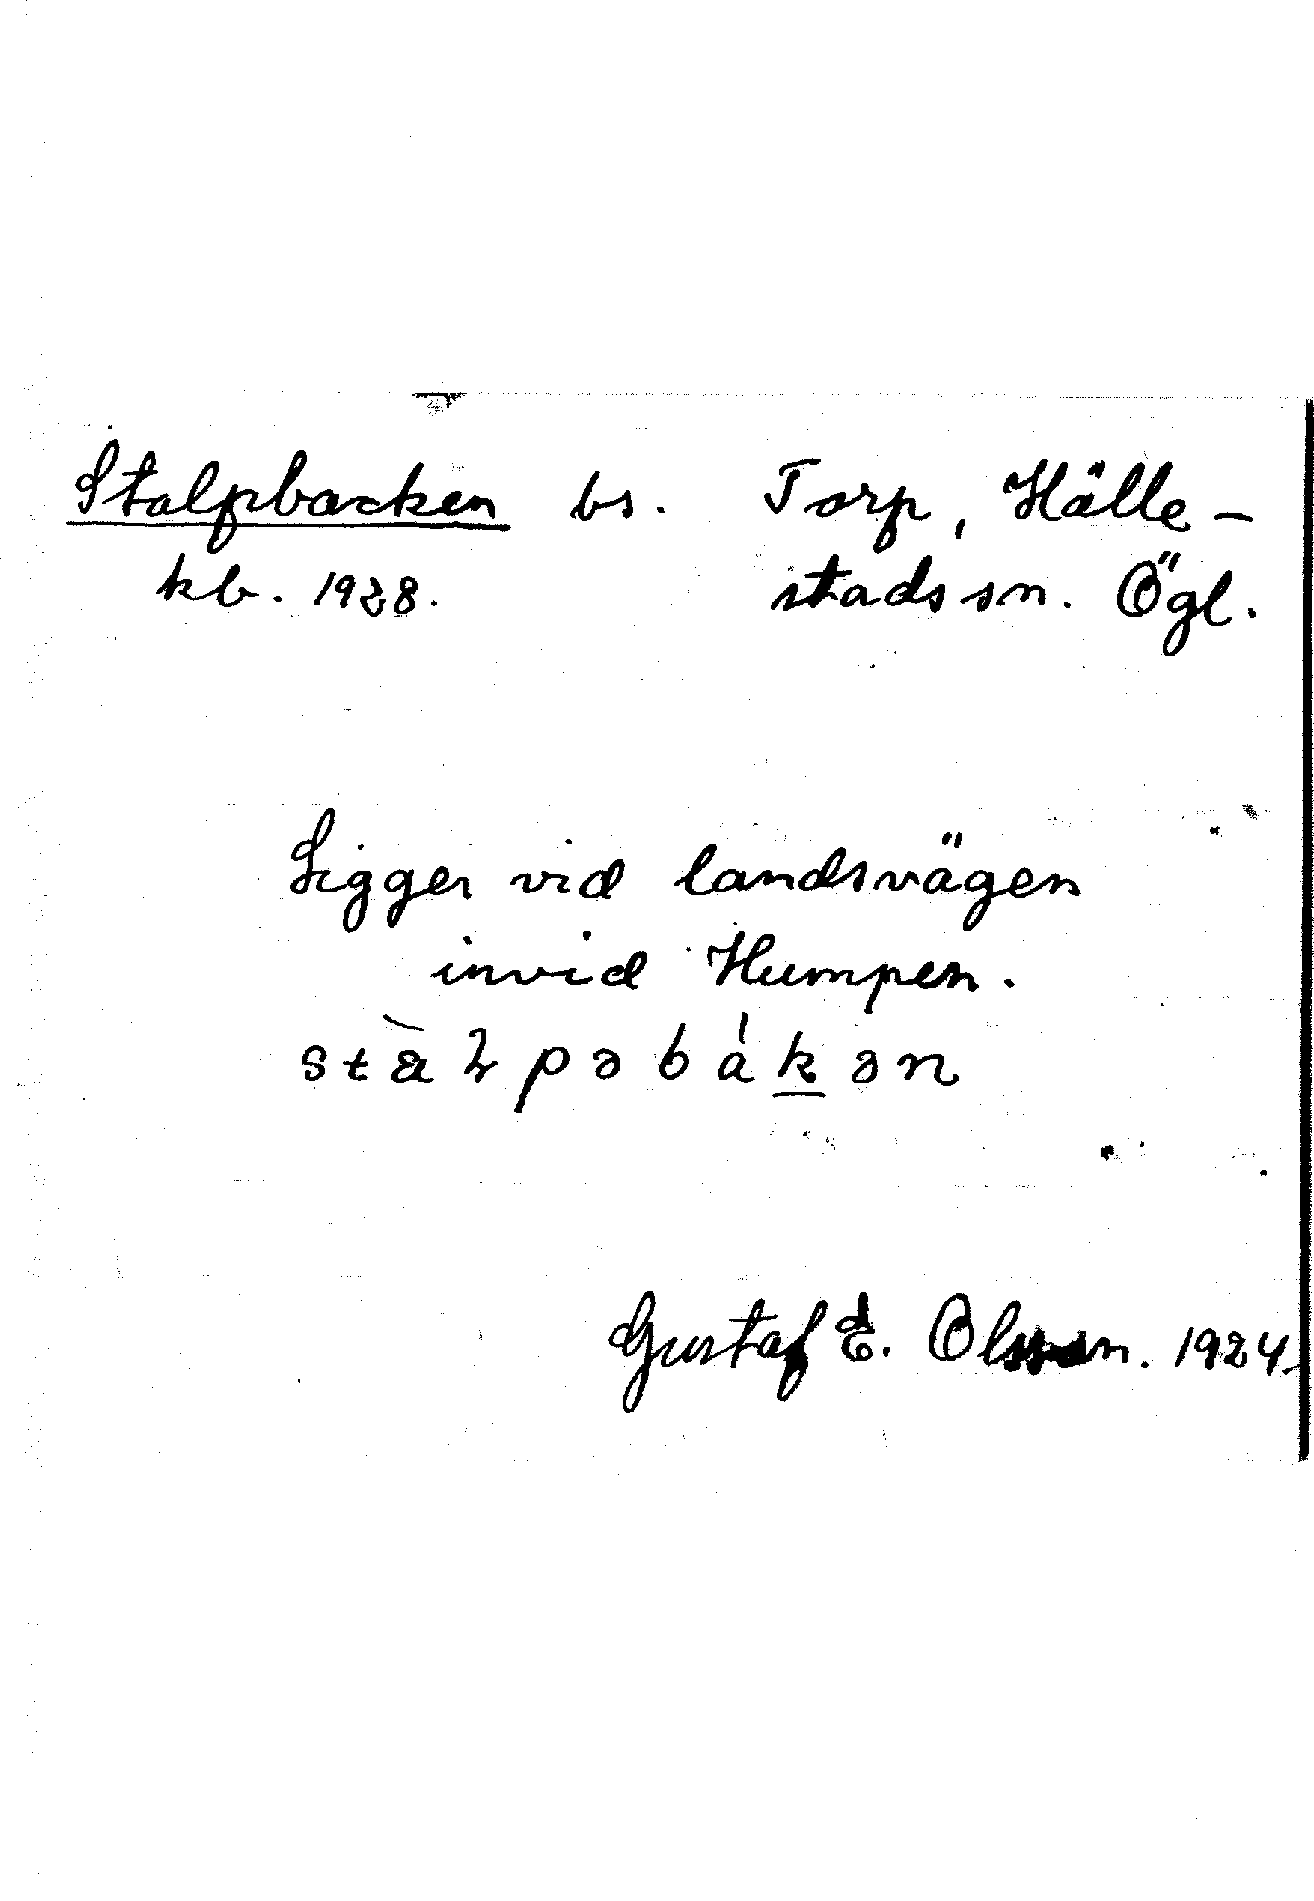 Stalpbacken bs. Torp, Hälle-
kb. 1928. stads sn. Ögl.
Ligger vid landsvägen
invid Humpen.
Gustaf E. Olsson. 1924.